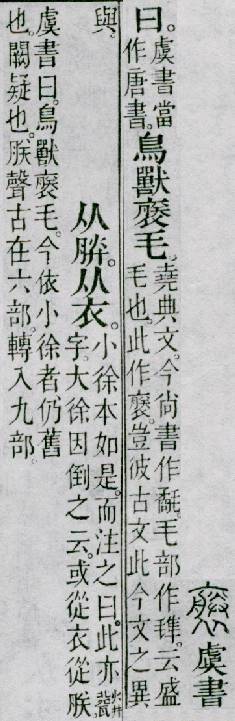 虞書
曰。
虞書當
作唐書。
鳥獸毛。
堯典文。今尙書作氄。毛部作。云盛
毛也。此作。豈彼古文此今文之異
與。
从朕。从衣。
小徐本如是。而注之曰。此亦
字。大徐因倒之云。或從衣從朕。
虞書曰。鳥獸毛。今依小徐者。仍舊
也。闕疑也。朕聲古在六部。轉入九部。